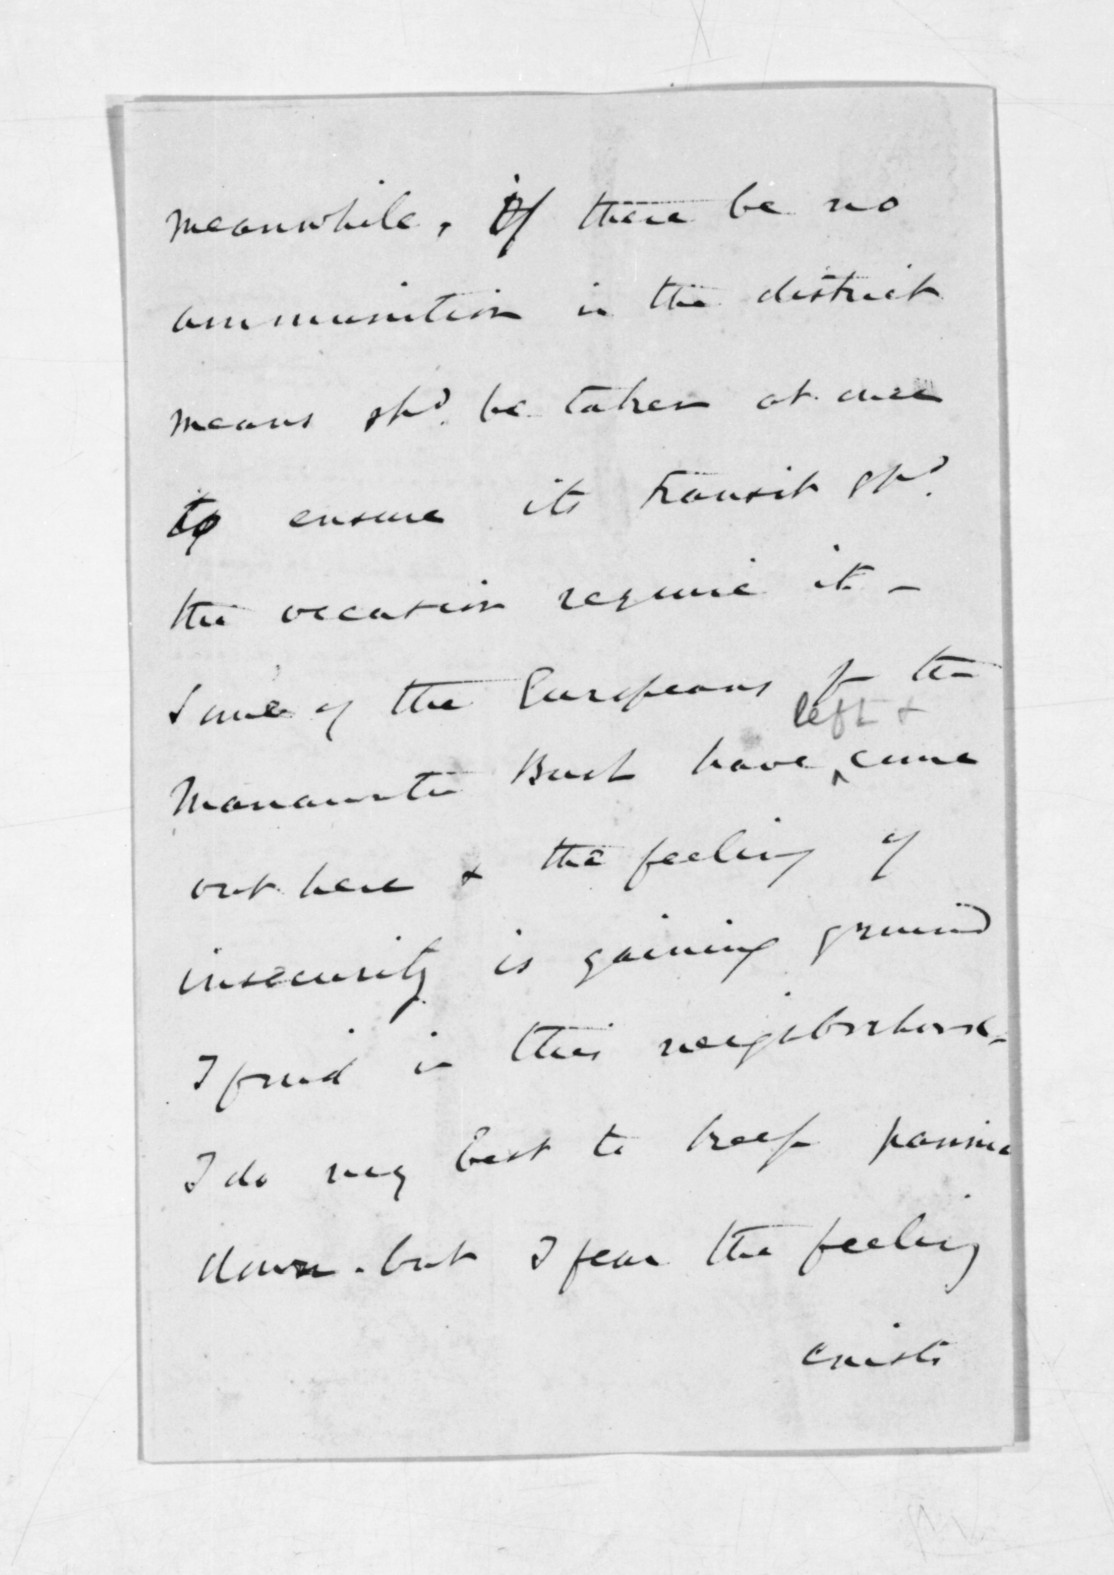 meanwhile, If there be no
ammunition in the district
means shd. be taken at once
to ensure its transit shd.
the occasion require it -
Some of the Europeans fm the
left &
Manawatu Bush have ^ come
out here & the feeling of
insecurity is gaining ground
I find in this neighborhood -
I do my best to keep
down - but I fear the feeling
exists